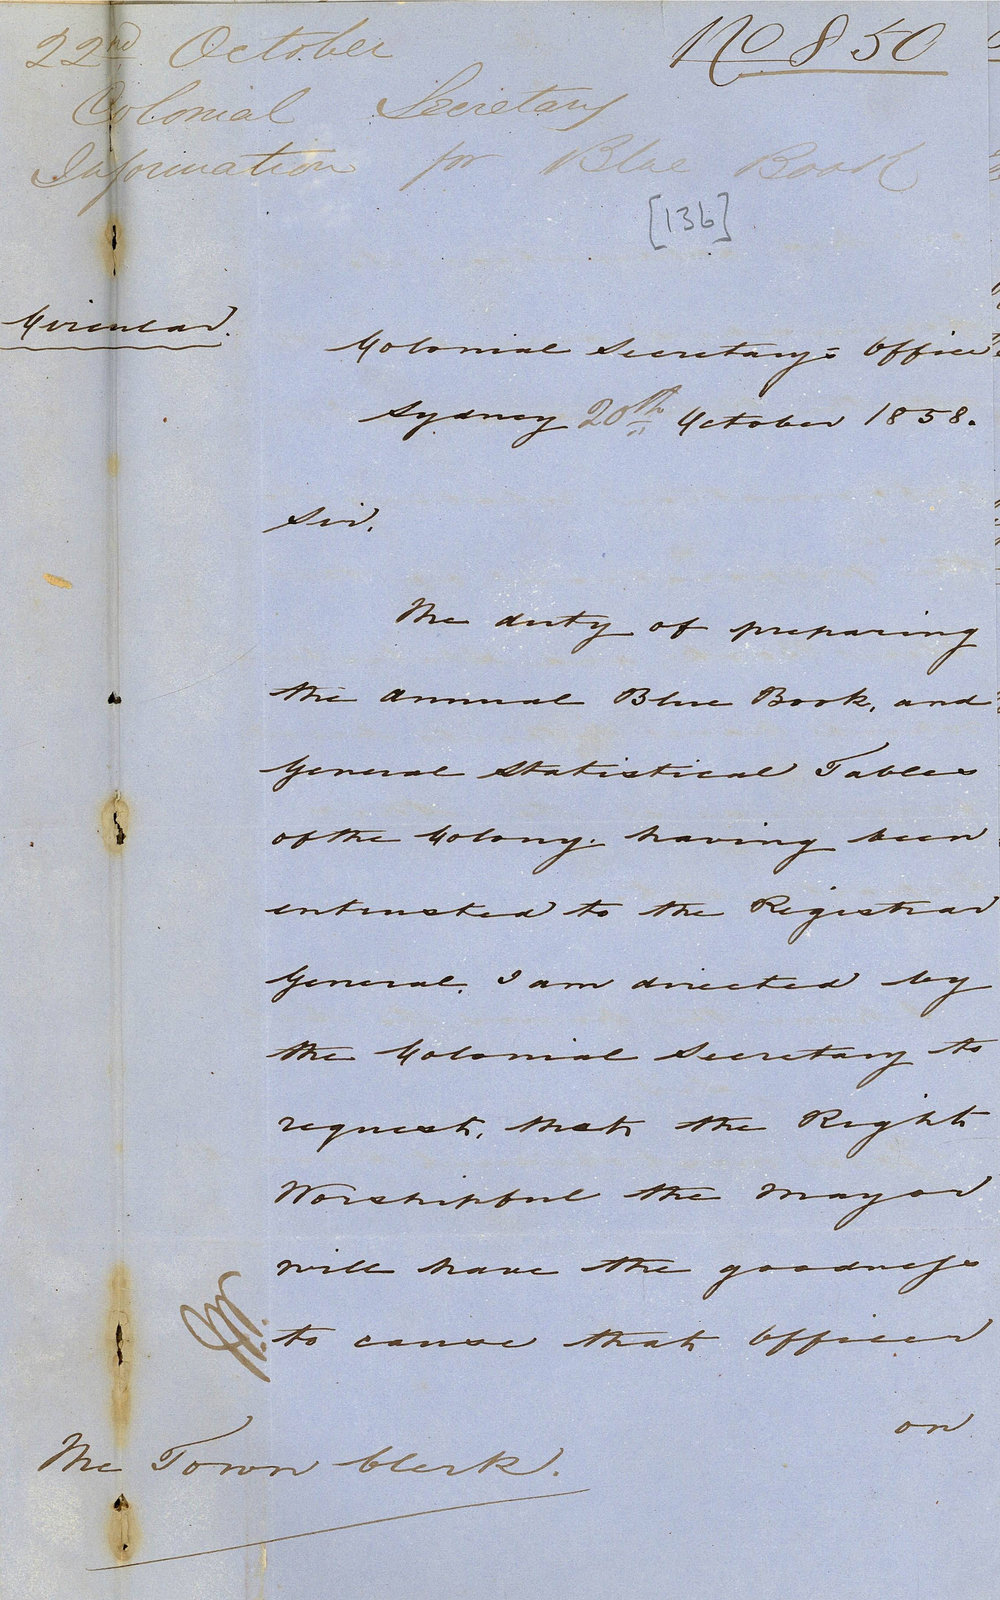 22nd October
No 850
Colonial Secretary
Information for Blue Book
[136]
Circular.
Colonial Secretary's Office
Sydney 20th October 1858.
Sir,
The duty of preparing
the Annual Blue Book, and
General Statistical Tables
of the Colony, having been
intrusted to the Registrar
General, I am directed by
the Colonial Secretary to
request, that the Right
Worshipful the Mayor
will have the goodness
to cause that Officer
on
The Town Clerk.